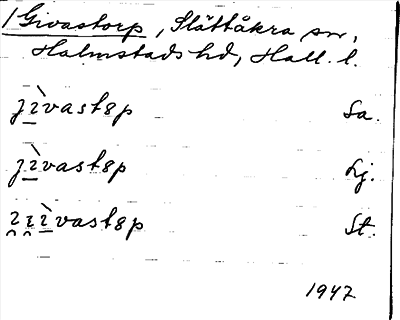 / Givastorp, Slättåkra sn,
Halmstads hd, Hall. l.
jìvastɵp Sa.
jìvastɵp Lj.
ɪ̯ɪ̯ìvastɵp St.
1947